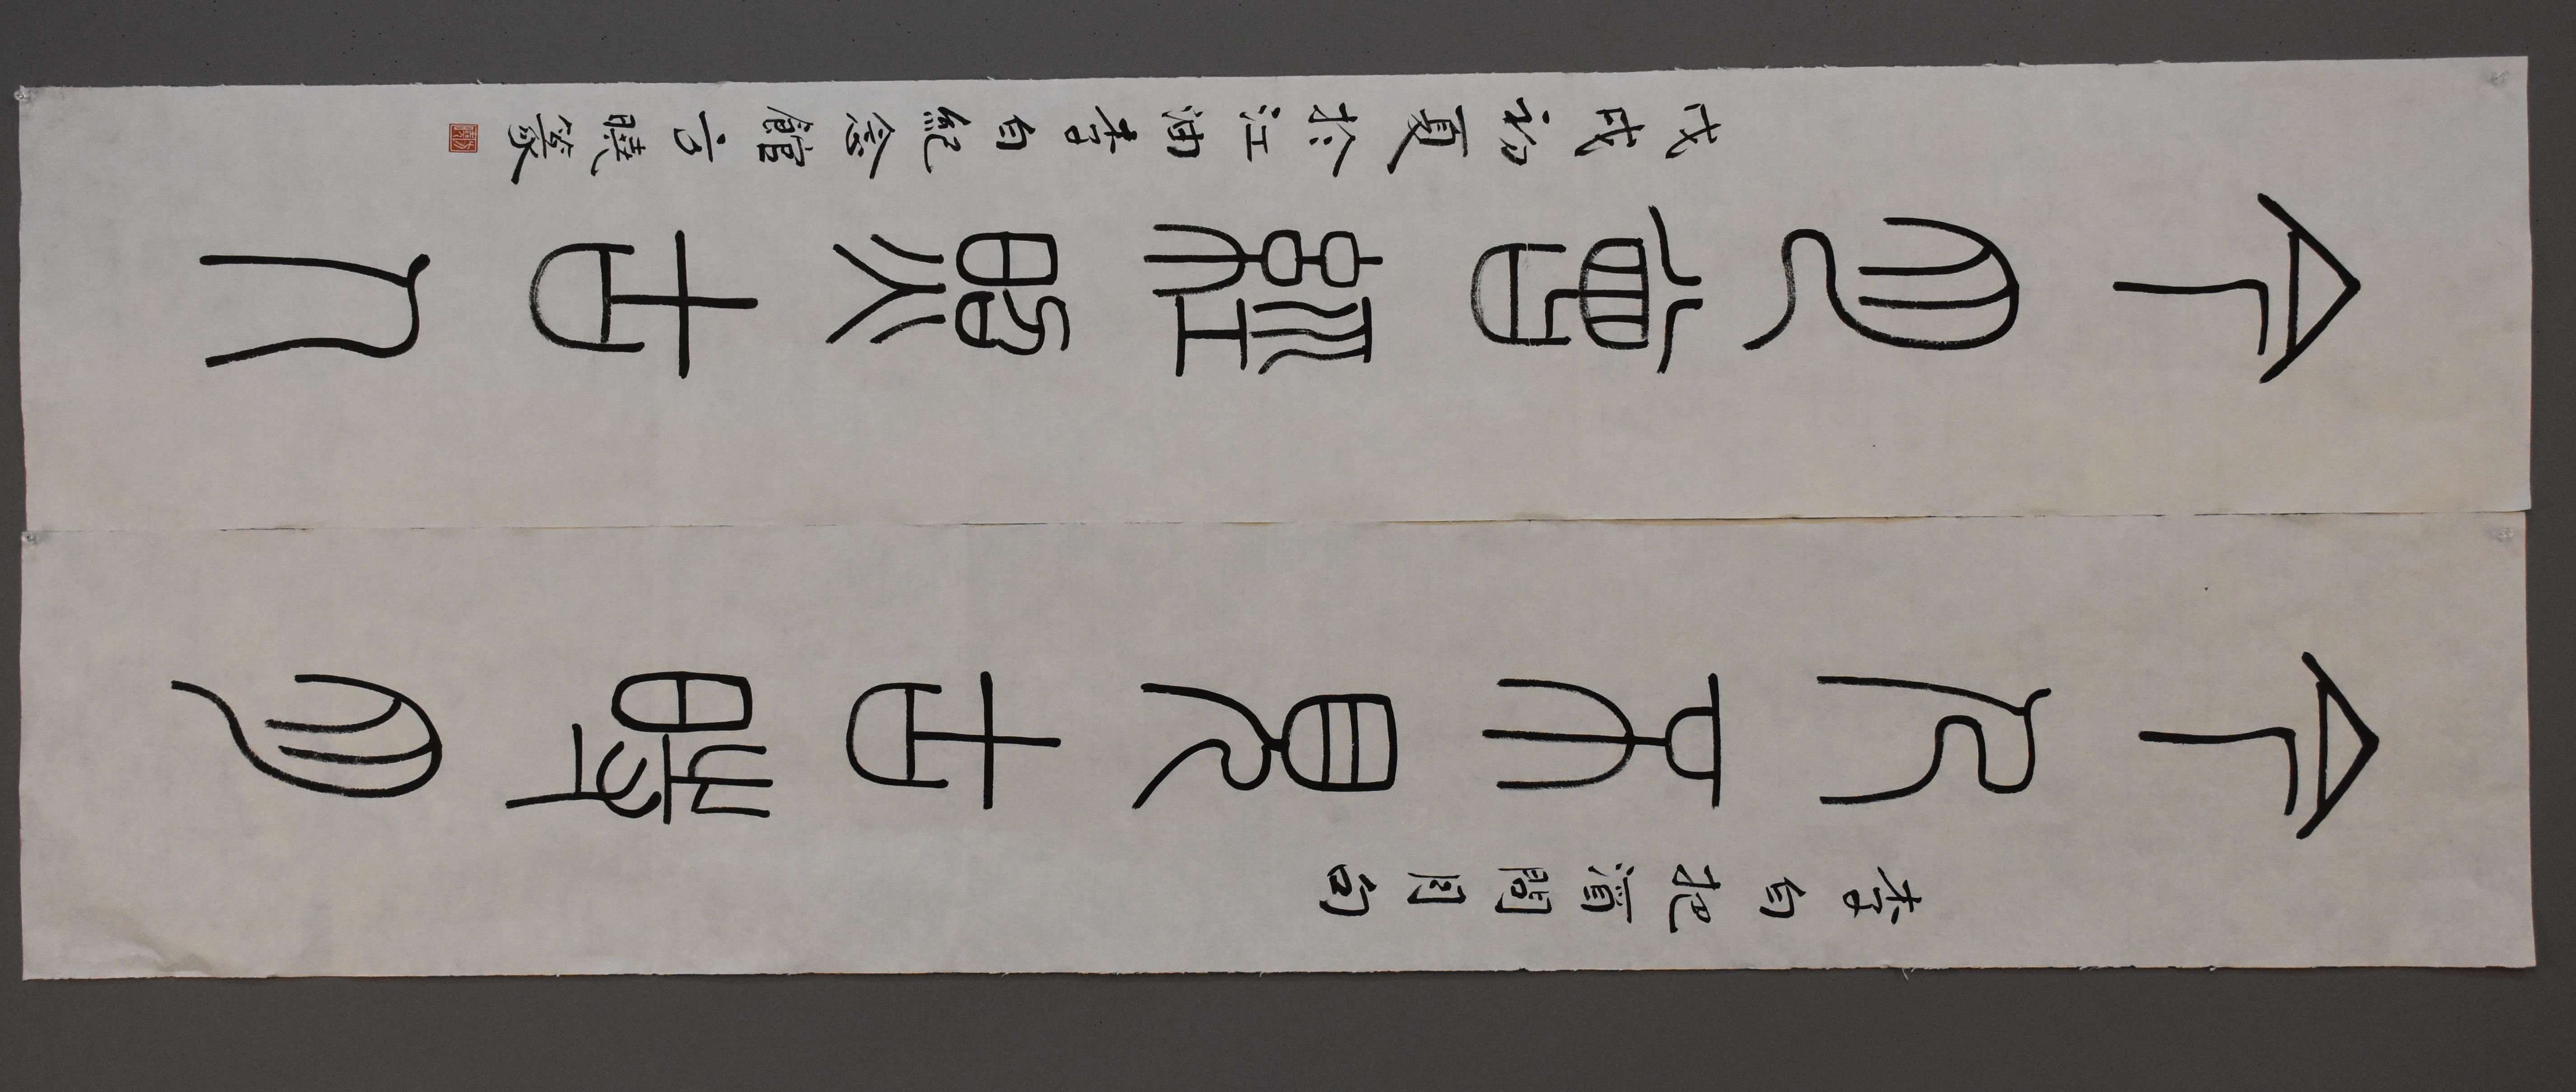 今人不見古時月
李白把酒問月句
今月曾經照古人
戊戌初夏於江油李白紀念館方曉篆